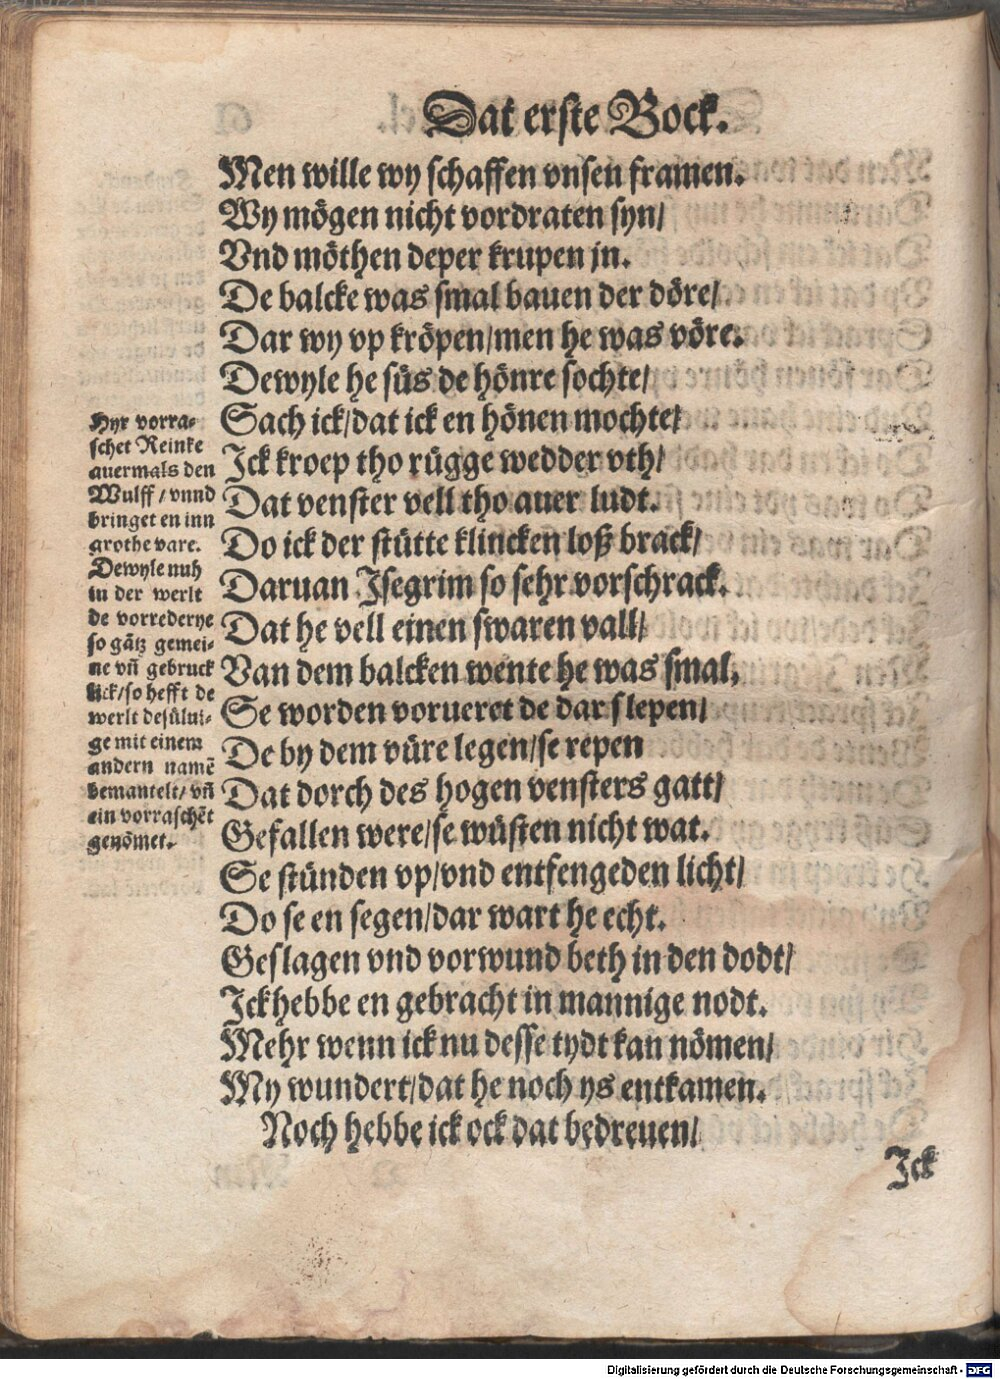 Dat erste Bock.
Men wille wy schaffen vnsen framen.
Wy mögen nicht vordraten syn/
Vnd möthen deper krupen jn.
De balcke was smal bauen der döre/
Dar wy vp kröpen/men he was vöre.
Dewyle he süs de hönre sochte/
Sach ick/dat ick en hönen mochte/
Ick kroep tho rügge wedder vth/
Dat venster vell tho auer ludt.
Do ick der stütte klincken loß brack/
Daruan Isegrim so sehr vorschrack.
Dat he vell einen swaren vall/
Van dem balcken wente he was smal,
Se worden vorueret de dar slepen/
De by dem vüre legen/se repen
Dat dorch des hogen vensters gatt/
Gefallen were/se wüsten nicht wat.
Se stünden vp/vnd entfengeden licht/
Do se en segen/dar wart he echt.
Geslagen vnd vorwund beth in den dodt/
Ick hebbe en gebracht in mannige nodt.
Mehr wenn ick nu desse tydt kan nömen/
My wundert/dat he noch ys entkamen.
Noch hebbe ick ock dat bedreuen/
Ick
Hyr vorra-
schet Reinke
auermals den
Wulff / vnnd
bringet en inn
grothe vare.
Dewyle nuh
in der werlt
de vorrederye
so gātz gemei-
ne vñ gebruck
lick/so hefft de
werlt desülui-
ge mit einem
andern namē
bemantelt/ vñ
ein vorraschēt
genömet.
Digitalisierung gefördert durch die Deutsche Forschungsgemeinschaft - DFG